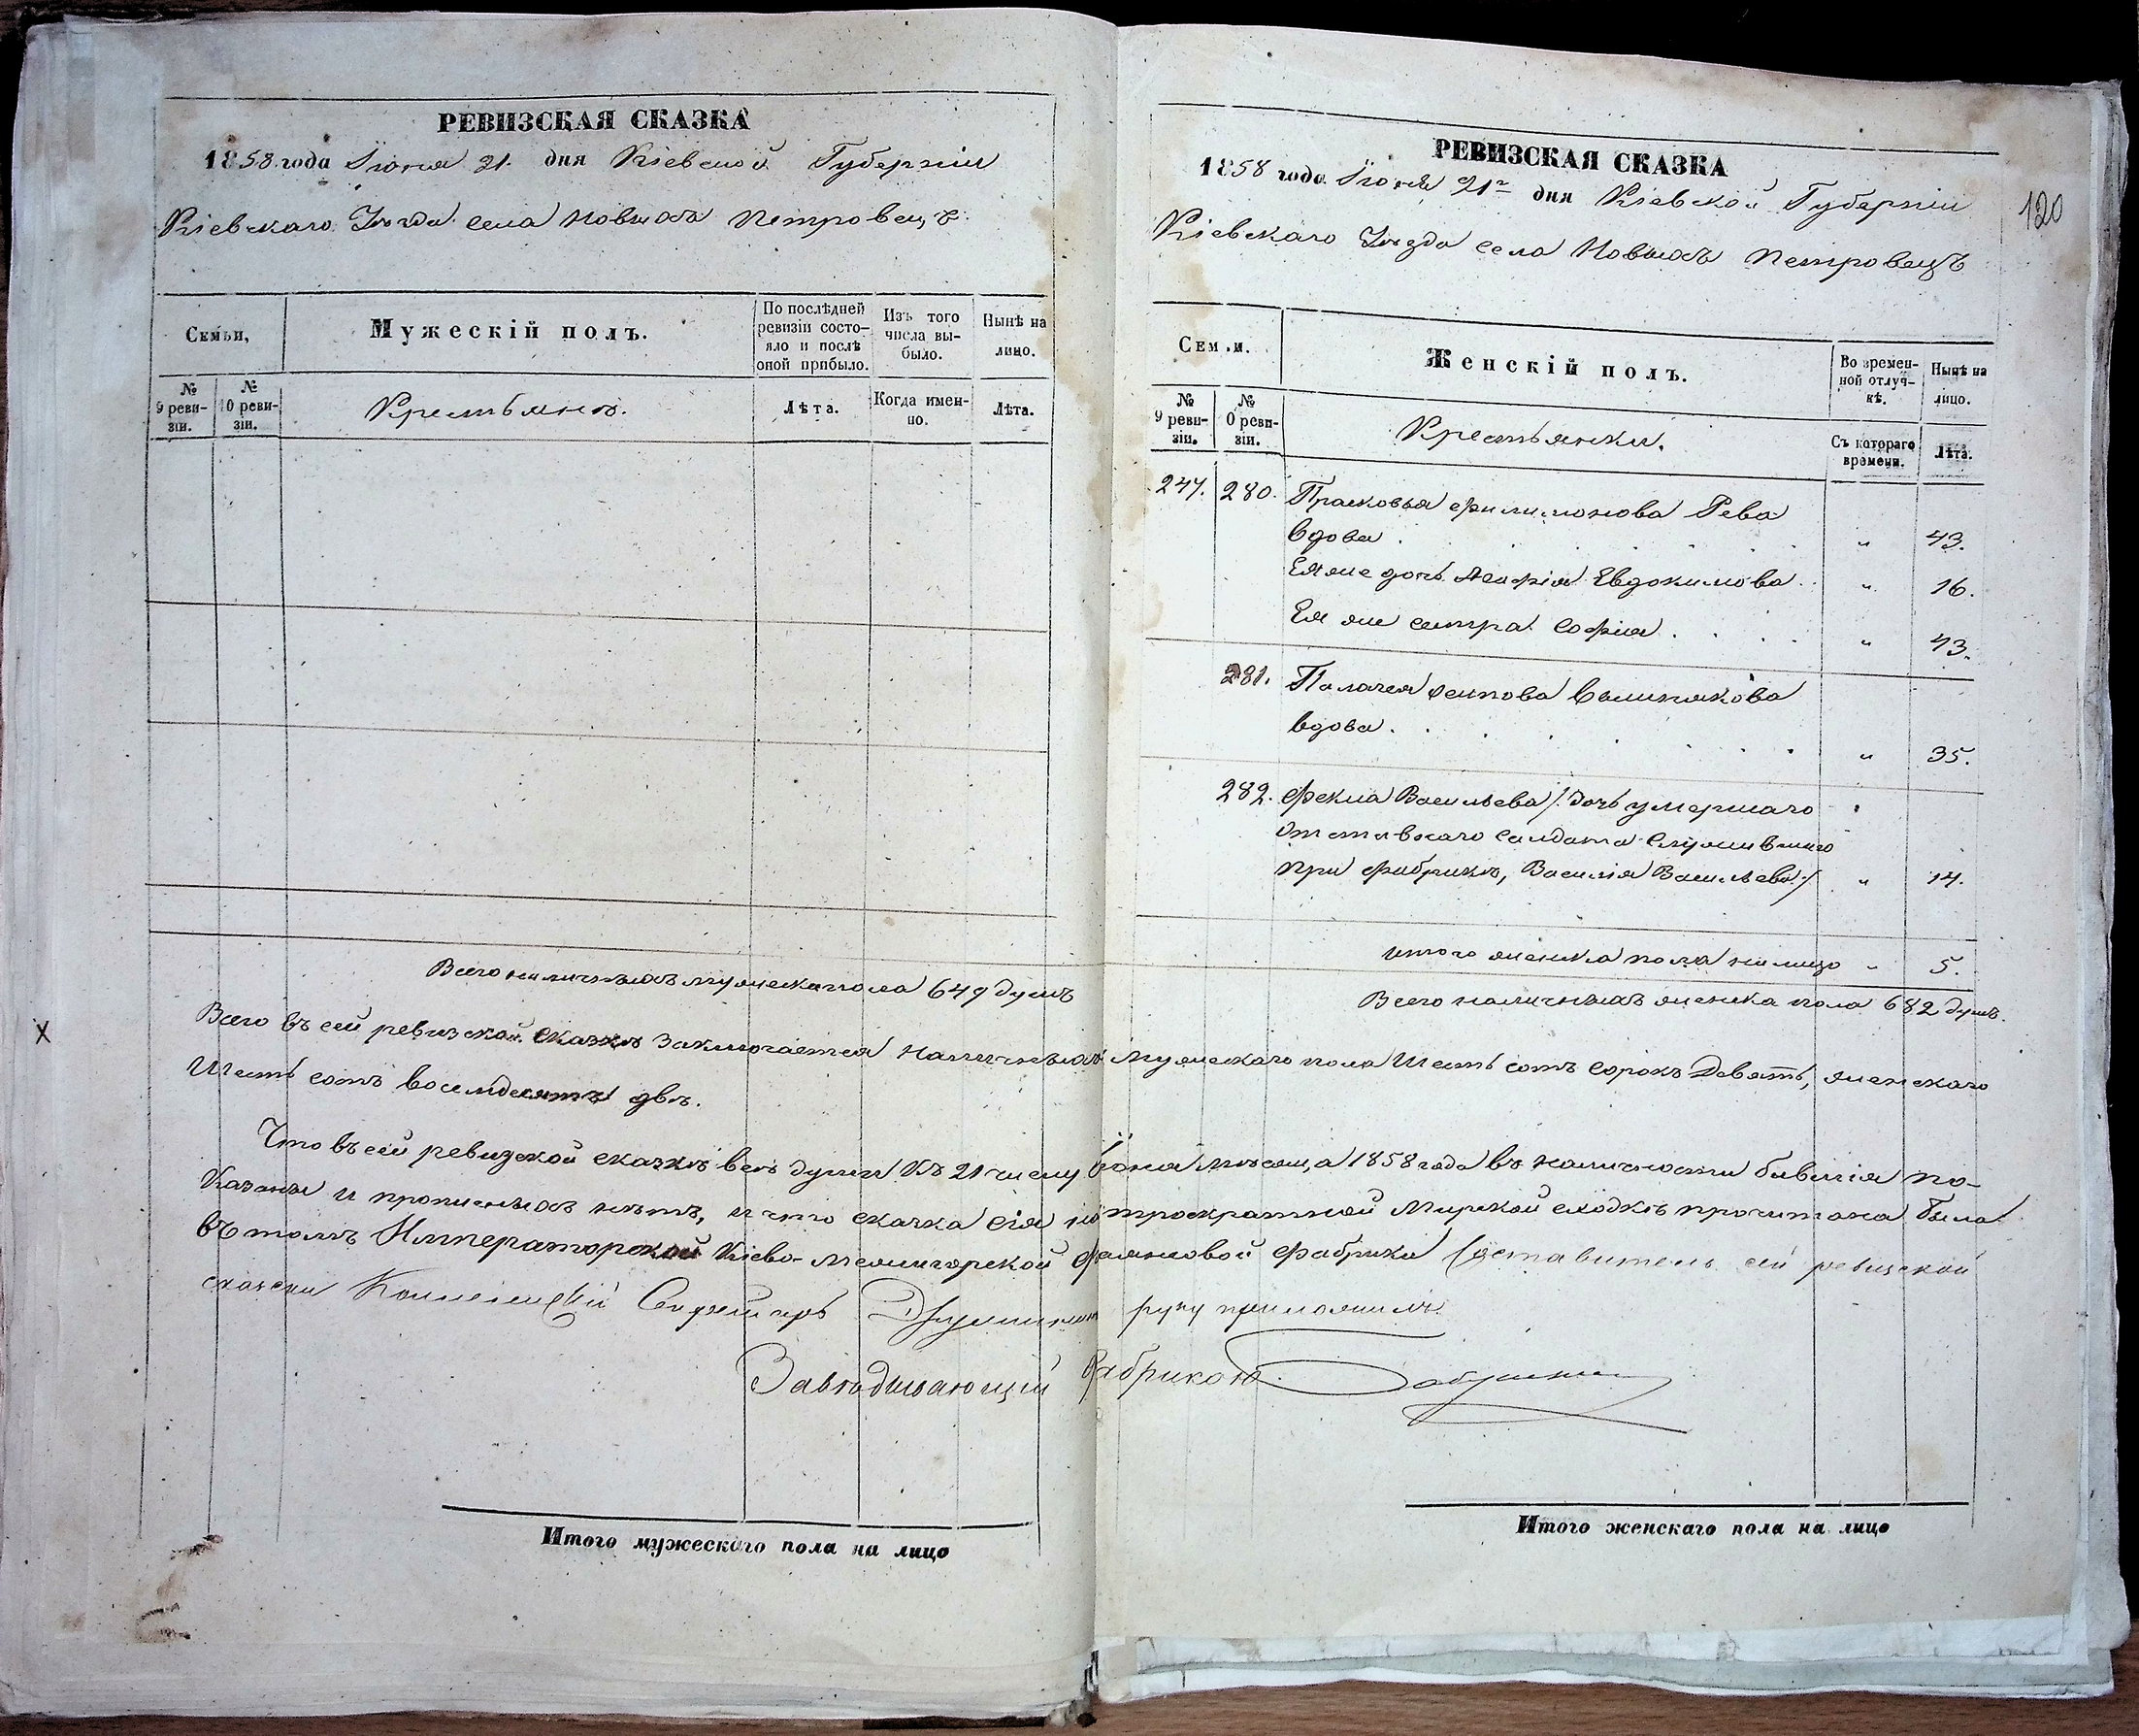 РЕВИЗСКАЯ СКАЗКА
1858 года Іюня 21. дня Кіевской Губерніи
Кіевскаго Уѣзда села Новыхъ Петровецъ
Семьи,
Мужескій полъ.
По послѣдней ревизіи состо-
яло и послѣ оной прибыло.
Изъ того числа вы-
было.
Нынѣ на лицо.
№ 9 реви-
зіи.
№ 10 реви-
зіи.
Крестьяне.
Лѣта.
Когда имен-
но.
Лѣта.
Всего наличныхъ мужеска пола 649 душъ
РЕВИЗСКАЯ СКАЗКА
1858 года Іюня 21го дня Кіевской Губерніи
Кіевскаго Уѣзда села Новыхъ Петровецъ
120
Сем.и.
Женскій полъ.
Во времен-
ной отлуч-
кѣ.
Нынѣ на лицо.
№ 9 реви-
зіи.
№ 0 реви-
зіи.
Крестьянки.
Съ котораго времени.
Лѣта.
247. 280. Прасковья Филимонова Рева
вдова . . . . . " 43.
Ея же дочь Агафія Евдокимова . " 16.
Ея же сестра Софія . . . . " 43.
281. Палагея Осипова Вишнякова
вдова . . . . . . " 35.
282. Фекла Васильева /: дочь умершаго
Отставнаго солдата служившаго
при фабрикѣ, Василія Васильева :/ " 14.
итого женска пола на лицо " 5.
Всего наличныхъ женска пола 682 душъ.
Всего въ сей ревизской сказкѣ заключается наличныхъ мужескаго пола Шесть сотъ сорокъ Девять, женскаго
Шесть сотъ восемдесятъ двѣ.
Что въ сей ревизской сказкѣ всѣ души къ 21 числу Іюня мѣсяца 1858 года въ наличности бывшія по-
казаны и прописныхъ нѣтъ, и что сказка сія на троекратной Мирской сходкѣ прочитана была
въ томъ Императорской Кіево-Межигорской фаянсовой Фабрики Составитель сей ревизской
сказски Коллежскій Секретарь руку приложилъ.
Завѣдывающій Фабрикою
Итого мужескаго пола на лицо
Итого женскаго пола на лицо